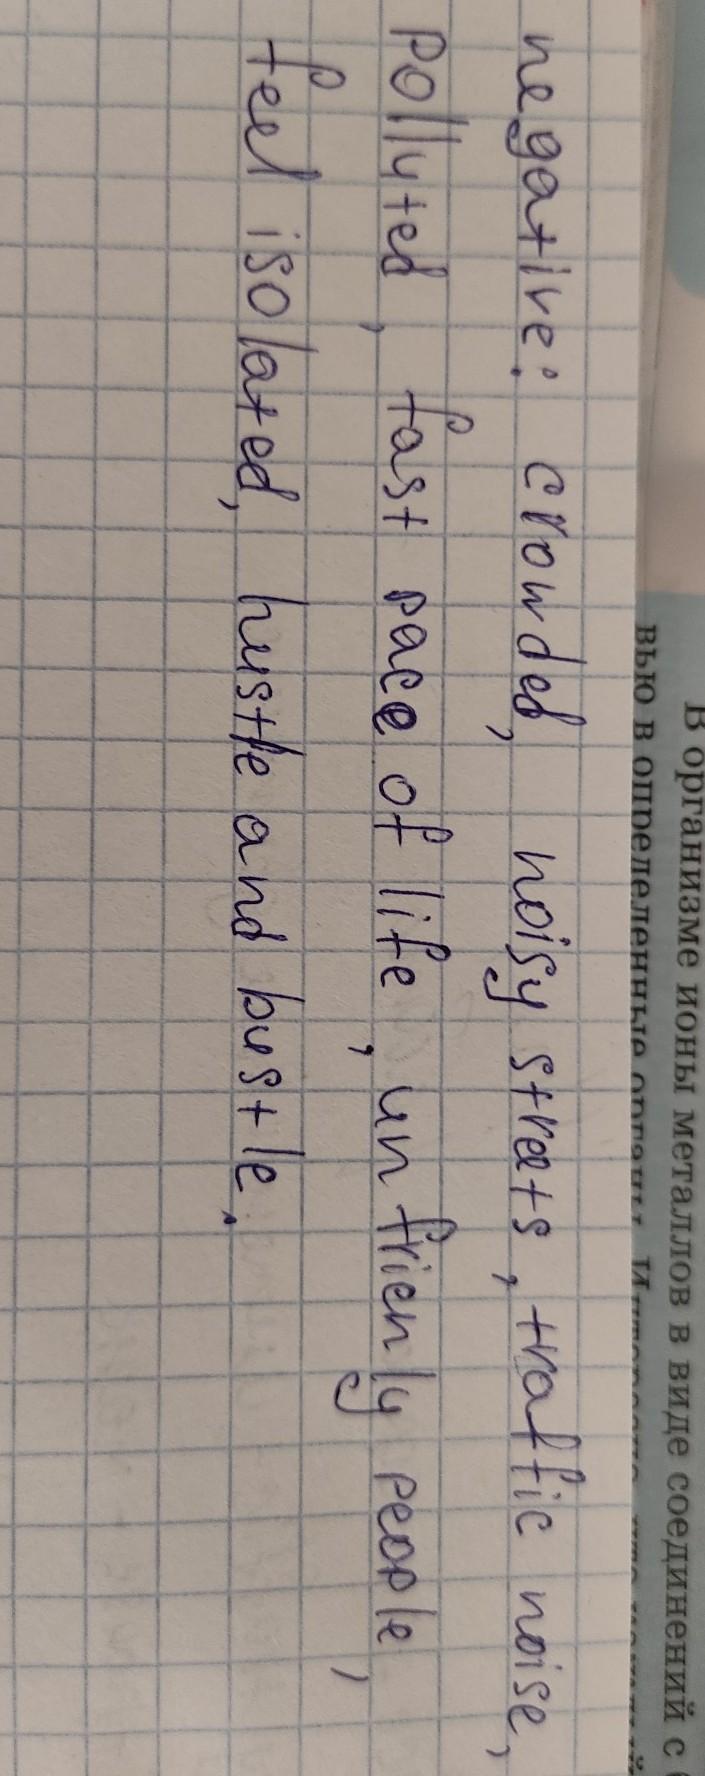 В организме ионы металлов в виде соединений с
вью в определенные органы. Интересно, что
negative: crowded, noisy streets, traffic noise,
pollyted, fast pace of life, unfrienly people,
feel isolated, hustle and bustle.